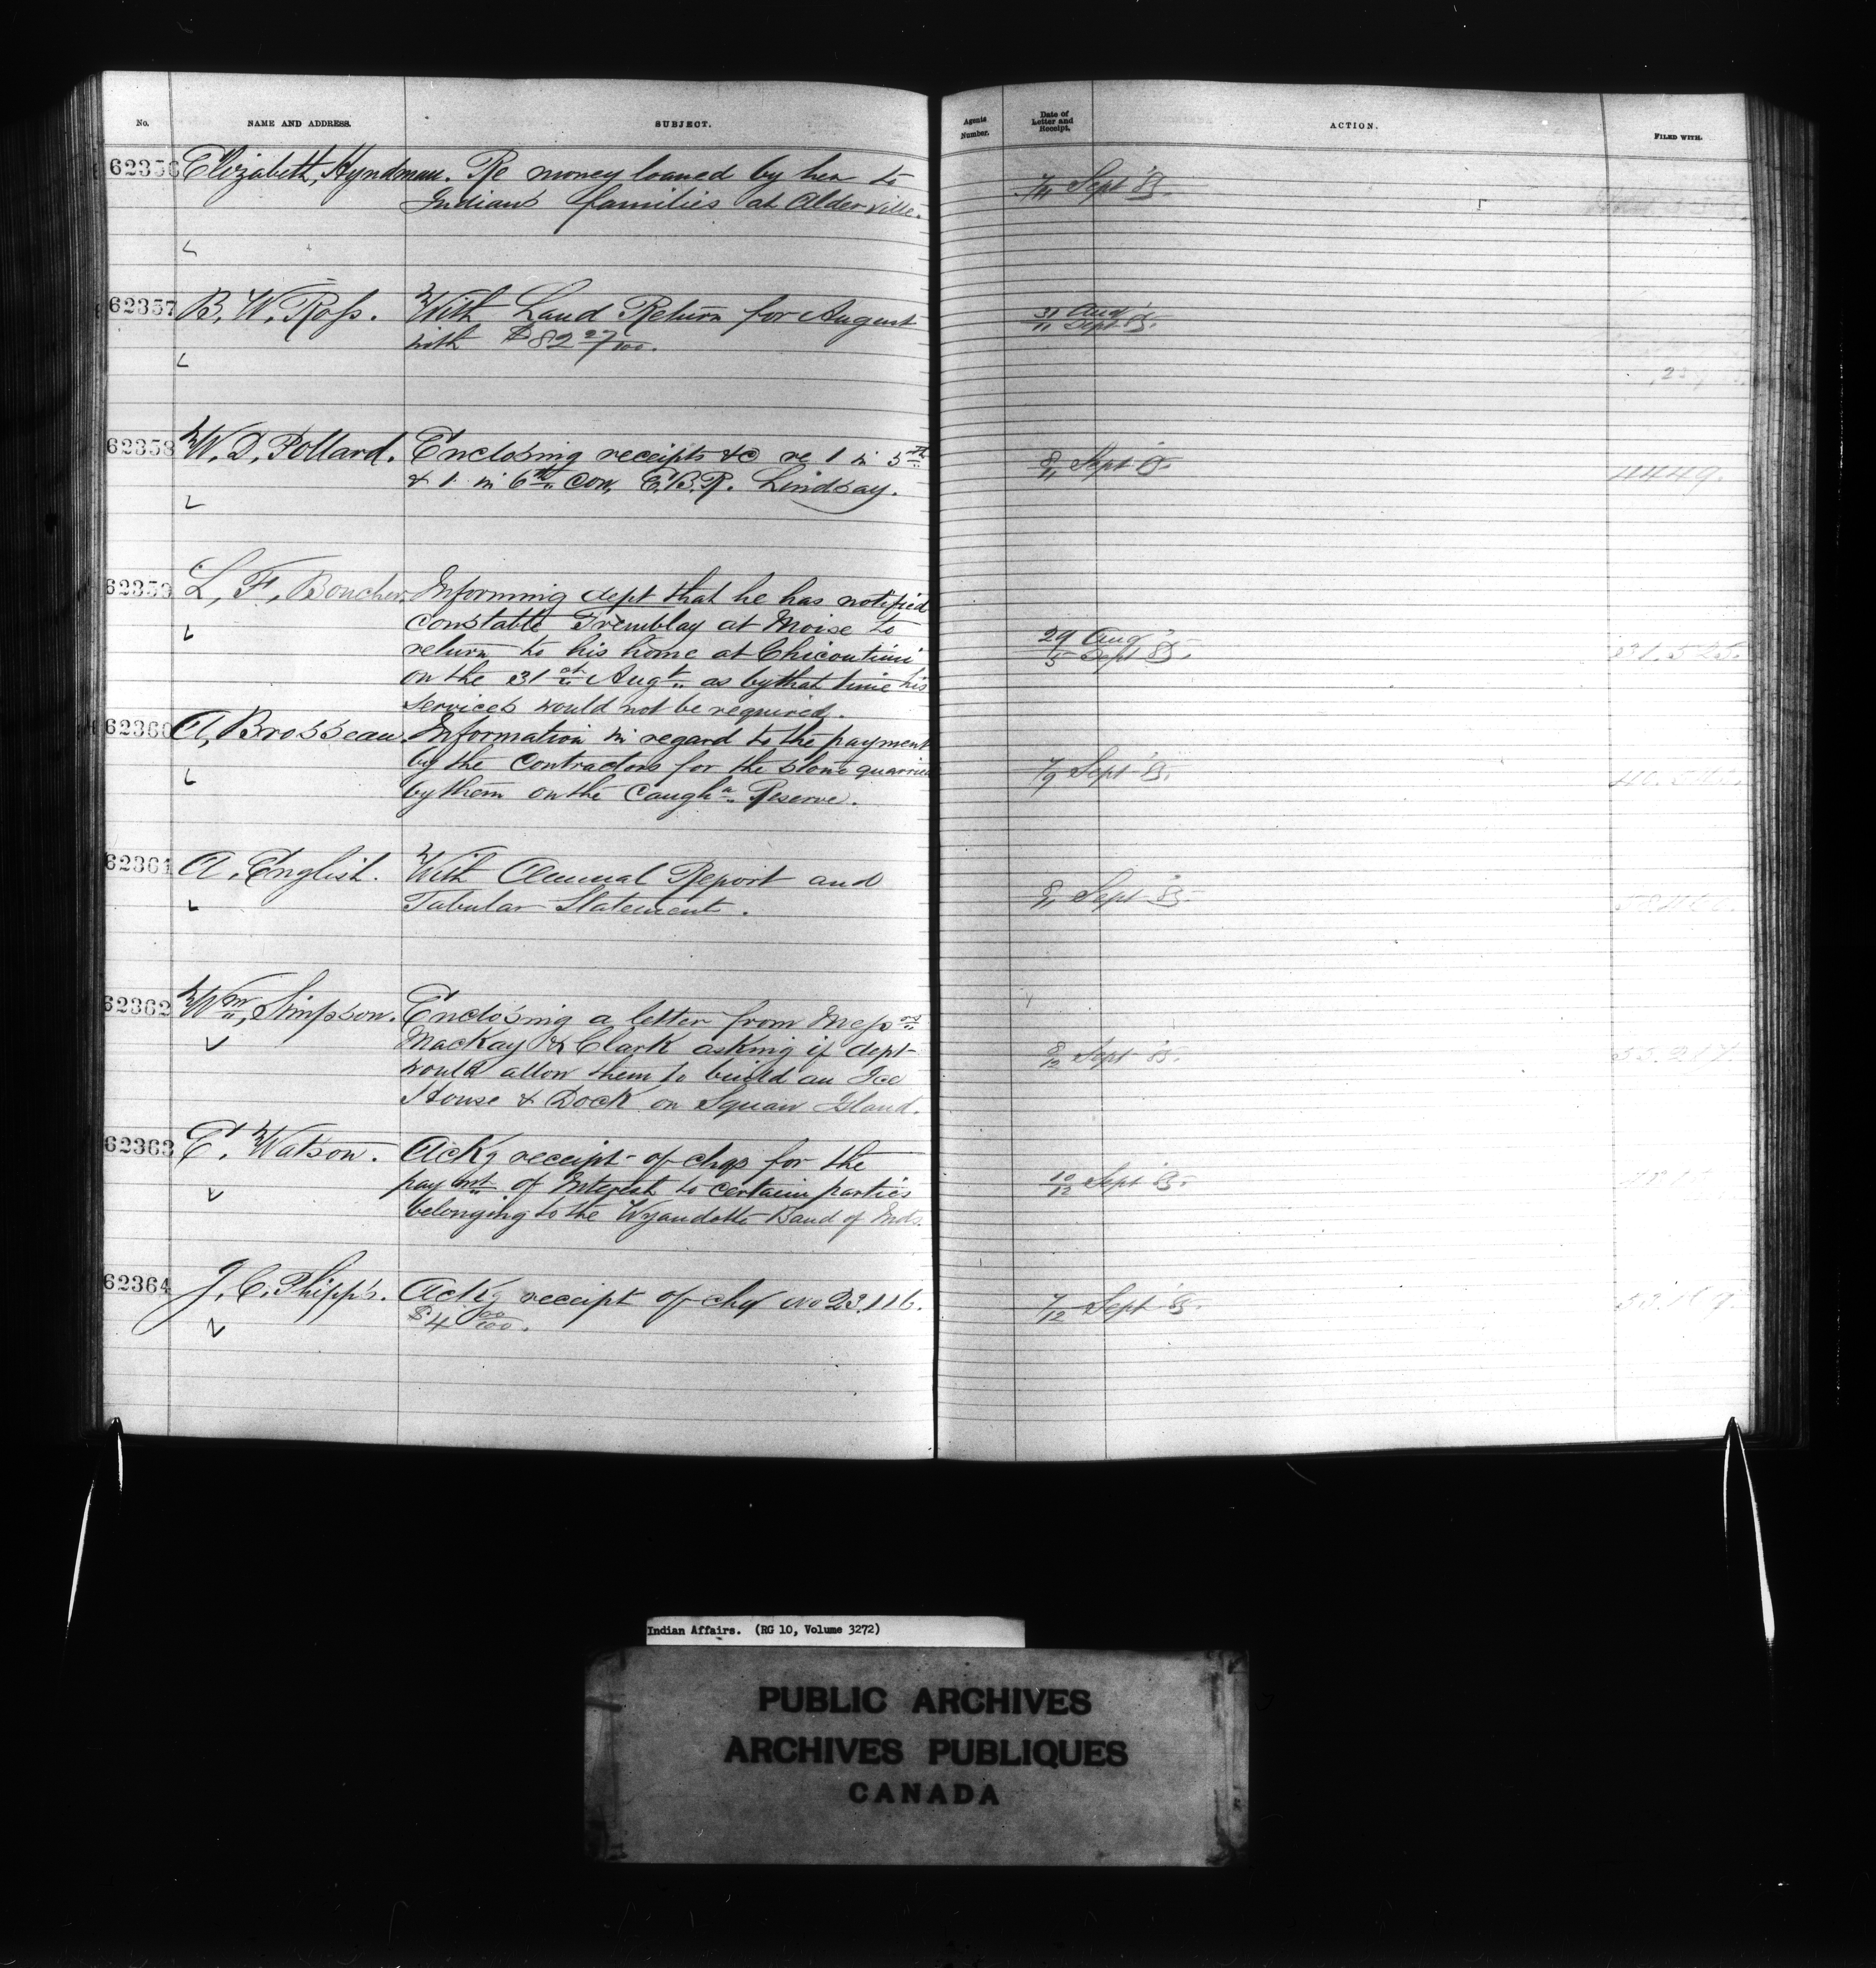 No. NAME AND ADDRESS. SUBJECT. Agents Number. Date of Letter and Receipt. ACTION. FILED WITH.
62356 Elizabeth, Hyndman. Re money loaned by her to 7/11 Sept '85.
Indians families at Alderville.
62357 B. W. Ross. With Land Return for August 31 Aug
with $82 27/100. 11 Sept '85.
62358 W. D. Pollard. Enclosing receipts &c re 1 in 5th 8/11 Sept '85
& 1 in 6th Con, E.B.R. Lindsay. 4449.
62359 L. F. Boucher. Informing dept that he has notified
Constable Tremblay at Moise to 29 Aug
return to his home at Chicoutimi 5 Sept 85. 31.525.
on the 31st Augt as by that time his
services would not be required.
62360 A, Brosseau. Information in regard to the payment
by the Contractors for the stone quarried 7/9 Sept '85.
by them on the Caugha Reserve.
62361 A. English. With Annual Report and 8/11 Sept '85.
Tabular Statement.
62362 Wm, Simpson. Enclosing a letter from Messrs
MacKay & Clark asking if dept 8/12 Sept '85.
would allow them to build an Ice
House & Dock on Squaw Island.
62363 E. Watson. Ackg receipt of chqs for the
paymnt of Interest to certain parties 10/12 Sept '85.
belonging to the Wyandotte Band of Inds.
62364 J. C. Phipps. Ackg receipt of chq No 23.116. 7/12 Sept '85.
$4 00/100.
Indian Affairs. (RG 10, Volume 3272)
PUBLIC ARCHIVES
ARCHIVES PUBLIQUES
CANADA